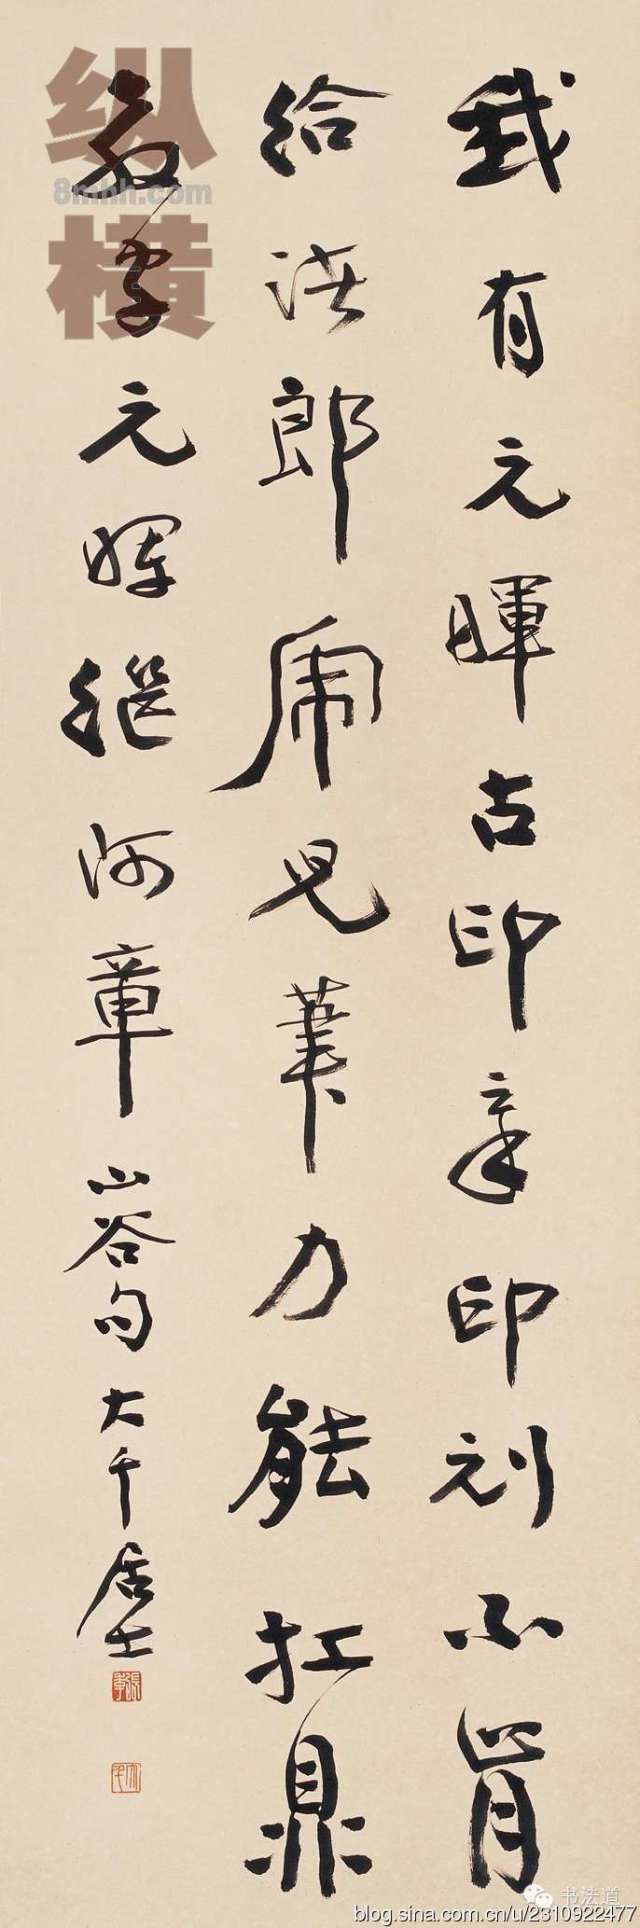 我有元暉古印章印刓不肯
給諸郎虎兒筆力能扛鼎
教字元暉继阿章
山谷句大千居士
纵横
8mhh.com
书法道
blog.sina.com.cn/u/2310922477